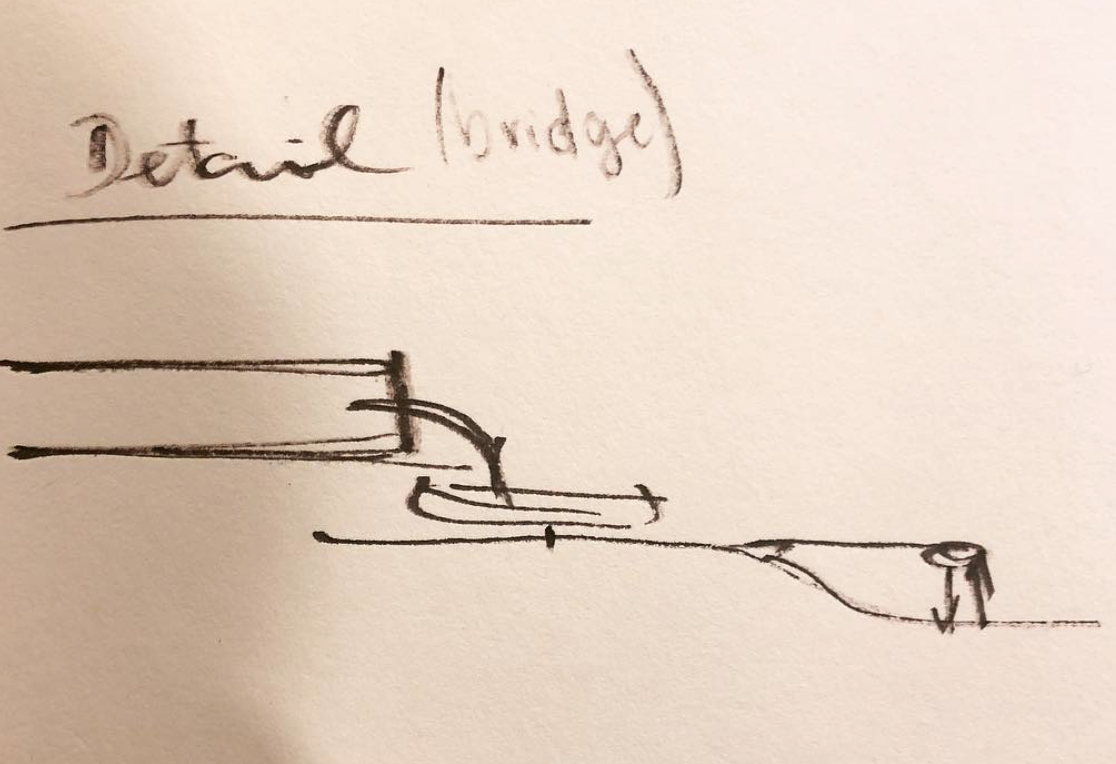 Detail (bridge)